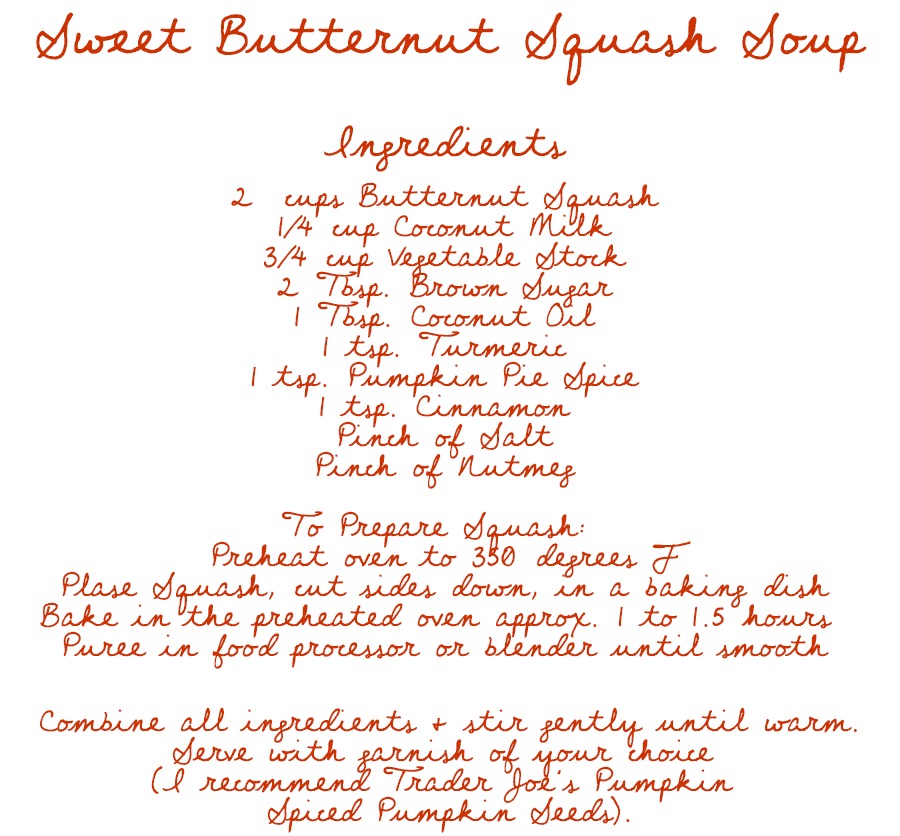 Sweet Butternut Squash Soup
Ingredients
2 cups Butternut Squash
1/4 cup Coconut Milk
3/4 cup Vegetable Stock
2 Tbsp. Brown Sugar
1 Tbsp. Coconut Oil
1 tsp. Turmeric
1 tsp. Pumpkin Pie Spice
1 tsp. Cinnamon
Pinch of Salt
Pinch of Nutmeg
To Prepare Squash:
Preheat oven to 350 degrees F
Plase Squash, cut sides down, in a baking dish
Bake in the preheated oven approx. 1 to 1.5 hours
Puree in food processor or blender until smooth
Combine all ingredients + stir gently until warm.
Serve with garnish of your choice
(I recommend Trader Joe's Pumpkin
Spiced Pumpkin Seeds).